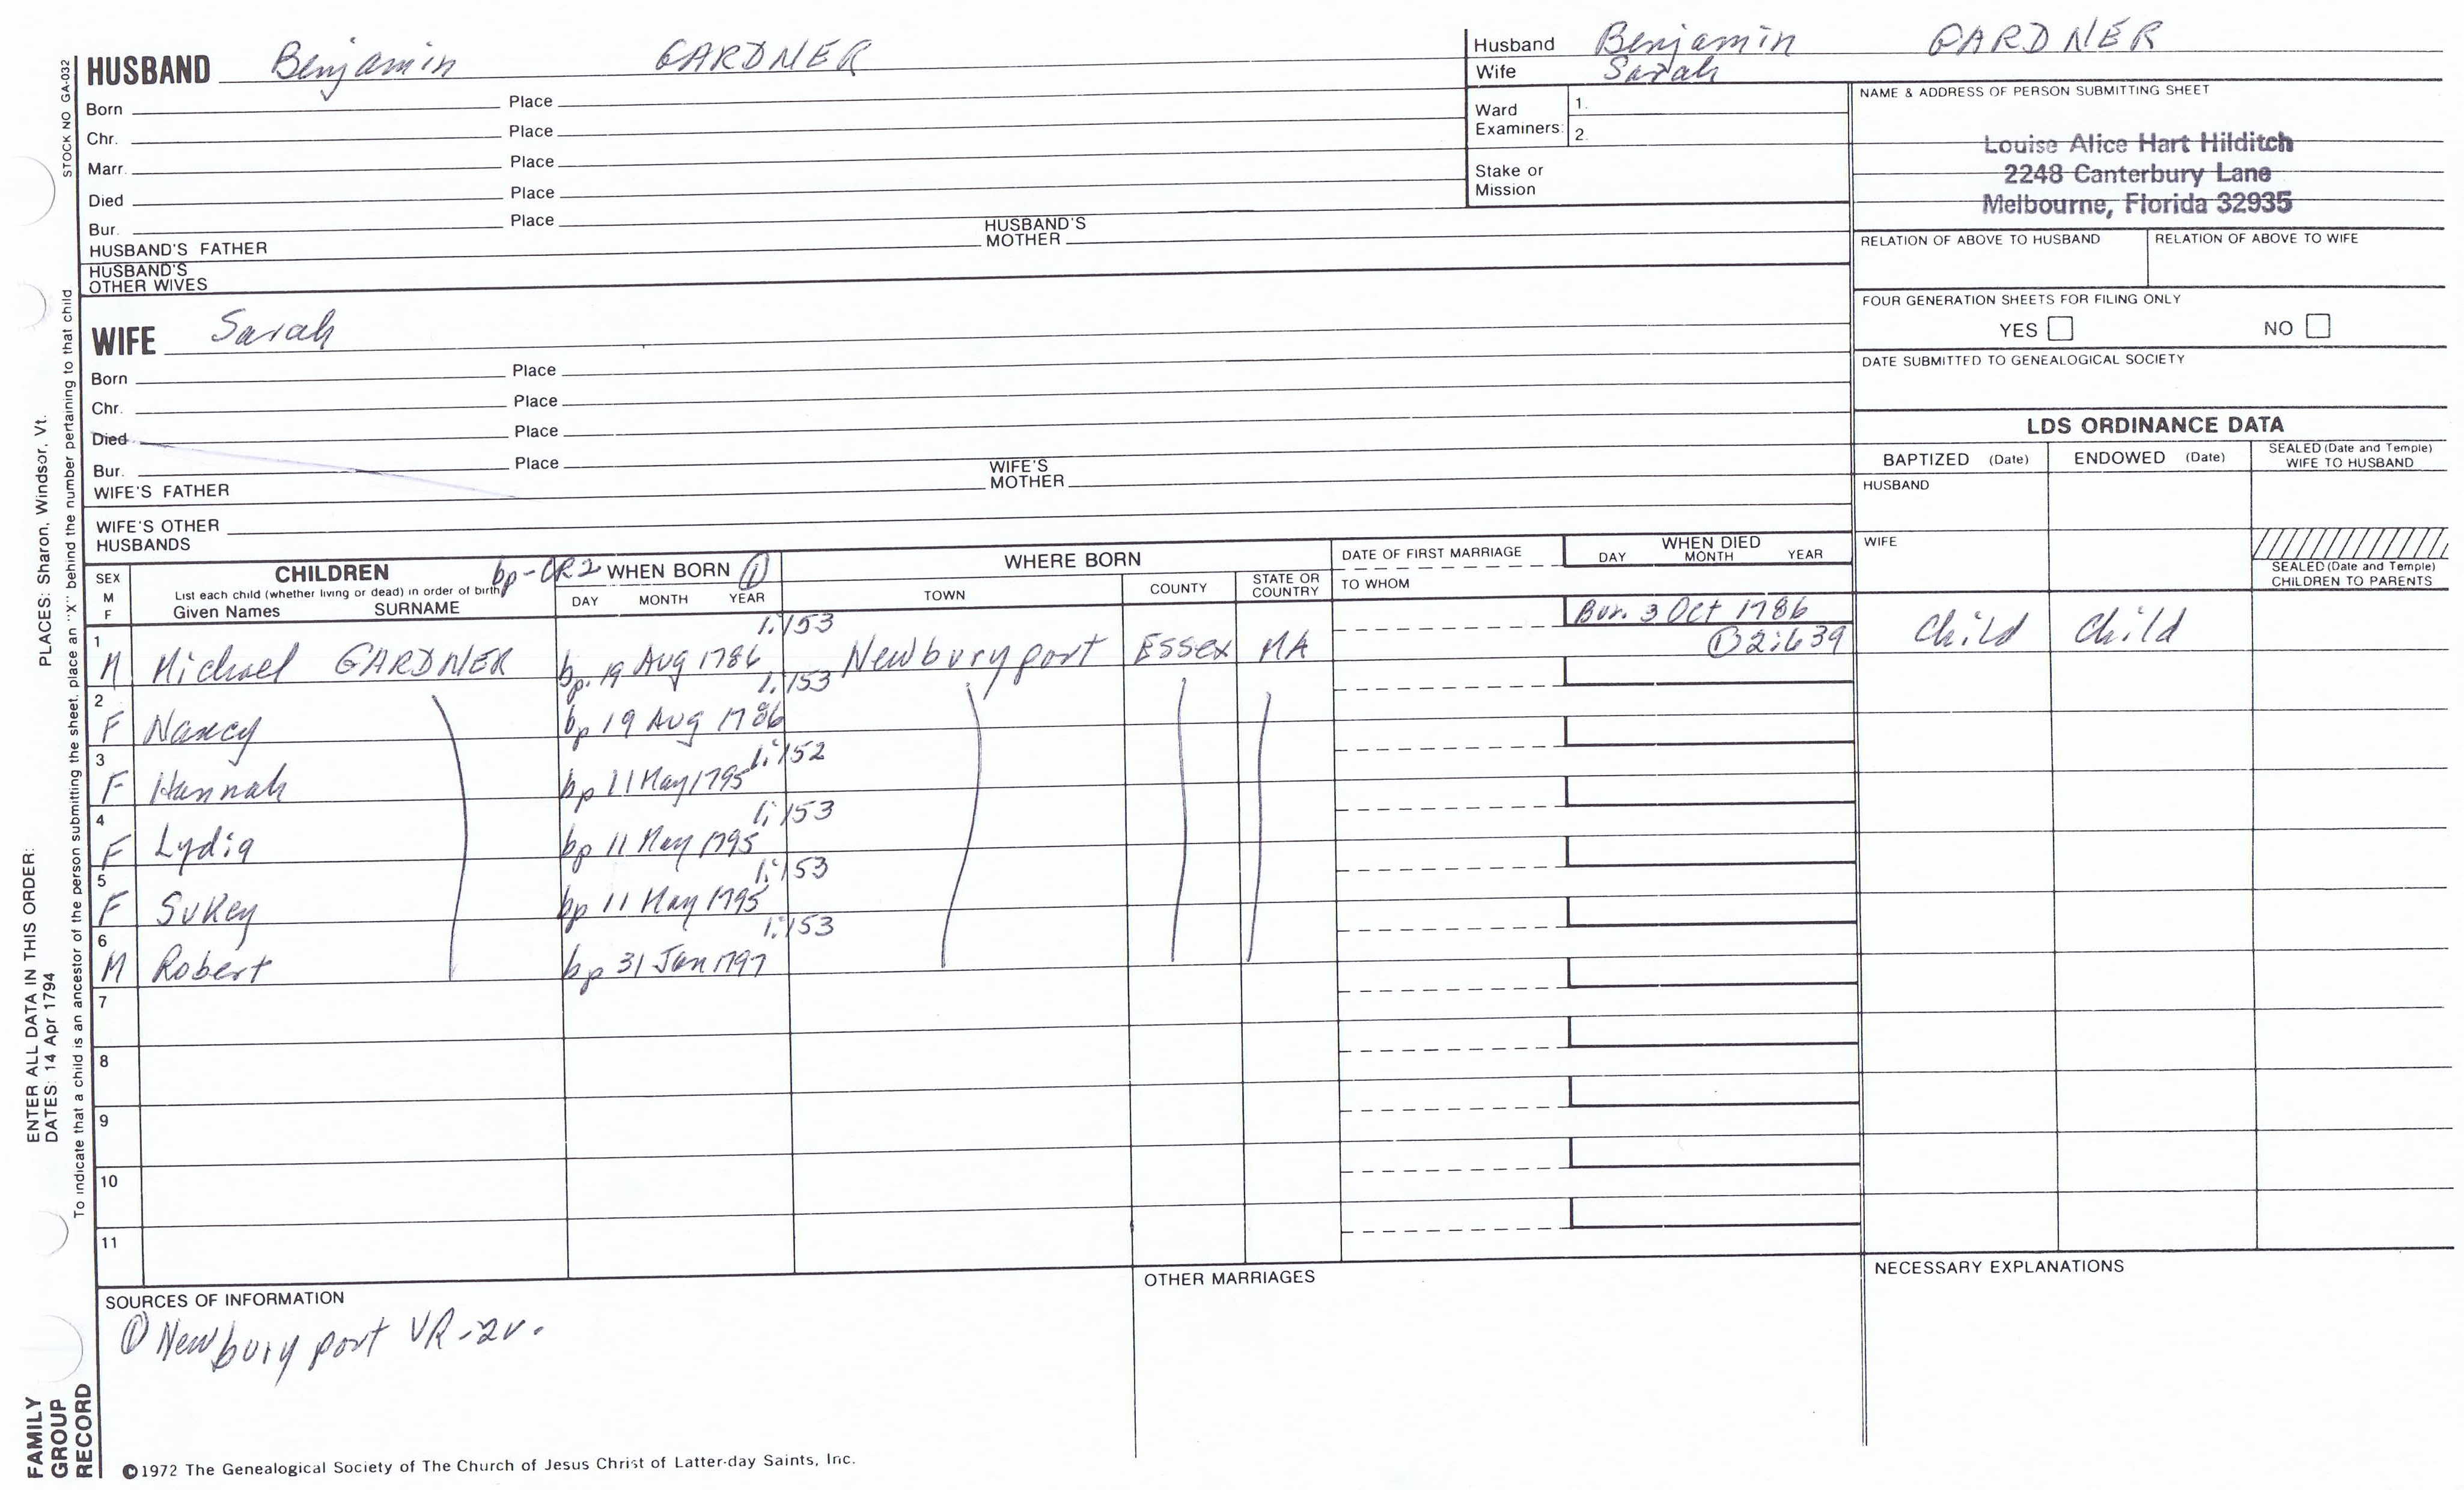 STOCK NO GA-032
HUSBAND Benjamin GARDNER
Born Place
Chr. Place
Marr. Place
Died Place
Bur. Place
HUSBAND'S FATHER HUSBAND'S MOTHER
HUSBAND'S OTHER WIVES
Husband Benjamin GARDNER
Wife Sarah
Ward Examiners: 1.
2.
Stake or Mission
NAME & ADDRESS OF PERSON SUBMITTING SHEET
Louise Alice Hart Hilditch
2248 Canterbury Lane
Melbourne, Florida 32935
RELATION OF ABOVE TO HUSBAND RELATION OF ABOVE TO WIFE
FOUR GENERATION SHEETS FOR FILING ONLY
YES NO
DATE SUBMITTED TO GENEALOGICAL SOCIETY
WIFE Sarah
Born Place
Chr. Place
Died Place
Bur. Place
WIFE'S FATHER WIFE'S MOTHER
WIFE'S OTHER HUSBANDS
LDS ORDINANCE DATA
BAPTIZED (Date) ENDOWED (Date) SEALED (Date and Temple) WIFE TO HUSBAND
HUSBAND
WIFE
SEALED (Date and Temple) CHILDREN TO PARENTS
SEX M F
CHILDREN
List each child (whether living or dead) in order of birth
Given Names SURNAME
bp-CR2 WHEN BORN ①
DAY MONTH YEAR
WHERE BORN
TOWN COUNTY STATE OR COUNTRY
DATE OF FIRST MARRIAGE
TO WHOM
WHEN DIED
DAY MONTH YEAR
1:153 Bur. 3 Oct 1786
1 M Michael GARDNER bp. 19 Aug 1786 Newburyport Essex MA ① 2:639 Child Child
1:153
2 F Nancy bp 19 Aug 1786
1:152
3 F Hannah bp 11 May 1795
1:153
4 F Lydia bp 11 May 1795
1:153
5 F Sukey bp 11 May 1795
1:153
6 M Robert bp 31 Jan 1797
7
8
9
10
11
SOURCES OF INFORMATION
① Newburyport VR-2v.
OTHER MARRIAGES
NECESSARY EXPLANATIONS
©1972 The Genealogical Society of The Church of Jesus Christ of Latter-day Saints, Inc.
FAMILY
GROUP
RECORD
ENTER ALL DATA IN THIS ORDER:
DATES: 14 Apr 1794
PLACES: Sharon, Windsor, Vt.
To indicate that a child is an ancestor of the person submitting the sheet, place an "X" behind the number pertaining to that child